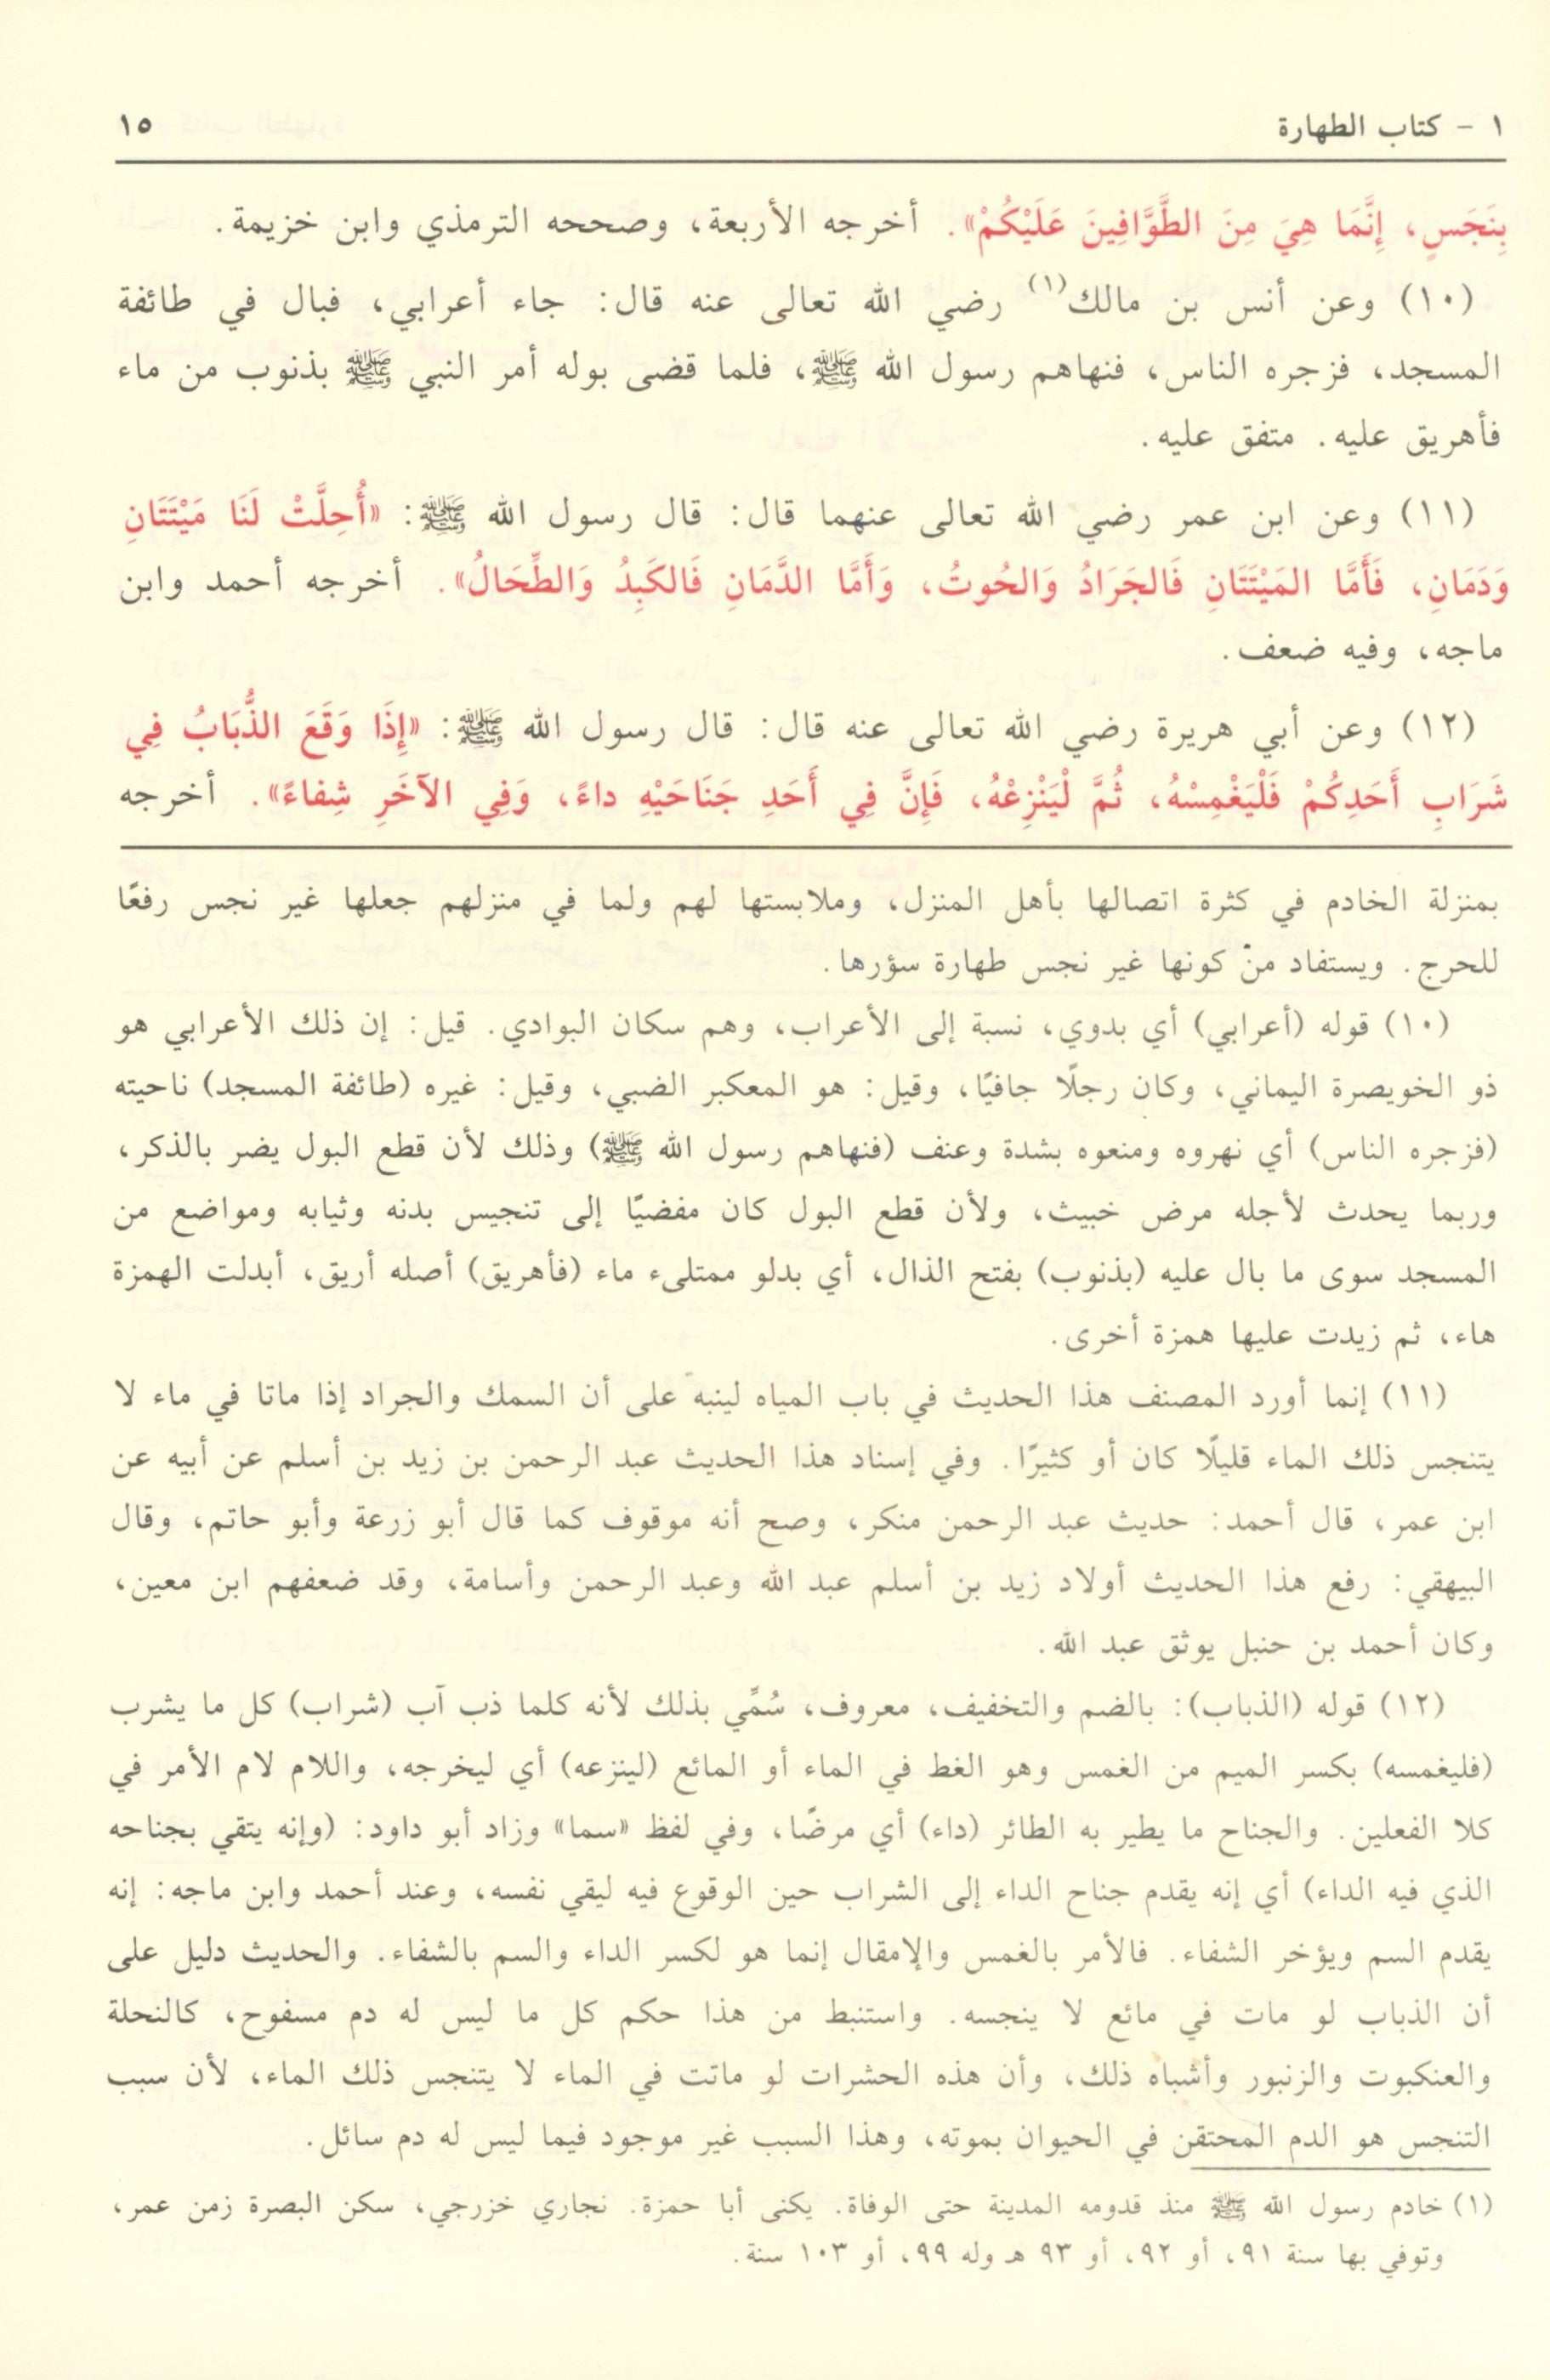 ١ - كتاب الطهارة ١٥
بِنَجَسٍ، إِنَّمَا هِيَ مِنَ الطَّوَّافِينَ عَلَيْكُمْ». أخرجه الأربعة، وصححه الترمذي وابن خزيمة.
(١٠) وعن أنس بن مالك(١) رضي الله تعالى عنه قال: جاء أعرابي، فبال في طائفة
المسجد، فزجره الناس، فنهاهم رسول الله ﷺ، فلما قضى بوله أمر النبي ﷺ بذنوب من ماء
فأهريق عليه. متفق عليه.
(١١) وعن ابن عمر رضي الله تعالى عنهما قال: قال رسول الله ﷺ: «أُحِلَّتْ لَنَا مَيْتَتَانِ
وَدَمَانِ، فَأَمَّا المَيْتَتَانِ فَالجَرَادُ وَالحُوتُ، وَأَمَّا الدَّمَانِ فَالكَبِدُ وَالطِّحَالُ». أخرجه أحمد وابن
ماجه، وفيه ضعف.
(١٢) وعن أبي هريرة رضي الله تعالى عنه قال: قال رسول الله ﷺ: «إِذَا وَقَعَ الذُّبَابُ فِي
شَرَابِ أَحَدِكُمْ فَلْيَغْمِسْهُ، ثُمَّ لْيَنْزِعْهُ، فَإِنَّ فِي أَحَدِ جَنَاحَيْهِ داءً، وَفِي الآخَرِ شِفاءً». أخرجه
بمنزلة الخادم في كثرة اتصالها بأهل المنزل، وملابستها لهم ولما في منزلهم جعلها غير نجس رفعًا
للحرج. ويستفاد منْ كونها غير نجس طهارة سؤرها.
(١٠) قوله (أعرابي) أي بدوي، نسبة إلى الأعراب، وهم سكان البوادي. قيل: إن ذلك الأعرابي هو
ذو الخويصرة اليماني، وكان رجلًا جافيًا، وقيل: هو المعكبر الضبي، وقيل: غيره (طائفة المسجد) ناحيته
(فزجره الناس) أي نهروه ومنعوه بشدة وعنف (فنهاهم رسول الله ﷺ) وذلك لأن قطع البول يضر بالذكر،
وربما يحدث لأجله مرض خبيث، ولأن قطع البول كان مفضيًا إلى تنجيس بدنه وثيابه ومواضع من
المسجد سوى ما بال عليه (بذنوب) بفتح الذال، أي بدلو ممتلىء ماء (فأهريق) أصله أريق، أبدلت الهمزة
هاء، ثم زيدت عليها همزة أخرى.
(١١) إنما أورد المصنف هذا الحديث في باب المياه لينبه على أن السمك والجراد إذا ماتا في ماء لا
يتنجس ذلك الماء قليلًا كان أو كثيرًا. وفي إسناد هذا الحديث عبد الرحمن بن زيد بن أسلم عن أبيه عن
ابن عمر، قال أحمد: حديث عبد الرحمن منكر، وصح أنه موقوف كما قال أبو زرعة وأبو حاتم، وقال
البيهقي: رفع هذا الحديث أولاد زيد بن أسلم عبد الله وعبد الرحمن وأسامة، وقد ضعفهم ابن معين،
وكان أحمد بن حنبل يوثق عبد الله.
(١٢) قوله (الذباب): بالضم والتخفيف، معروف، سُمِّي بذلك لأنه كلما ذب آب (شراب) كل ما يشرب
(فليغمسه) بكسر الميم من الغمس وهو الغط في الماء أو المائع (لينزعه) أي ليخرجه، واللام لام الأمر في
كلا الفعلين. والجناح ما يطير به الطائر (داء) أي مرضًا، وفي لفظ «سما» وزاد أبو داود: (وإنه يتقي بجناحه
الذي فيه الداء) أي إنه يقدم جناح الداء إلى الشراب حين الوقوع فيه ليقي نفسه، وعند أحمد وابن ماجه: إنه
يقدم السم ويؤخر الشفاء. فالأمر بالغمس والإمقال إنما هو لكسر الداء والسم بالشفاء. والحديث دليل على
أن الذباب لو مات في مائع لا ينجسه. واستنبط من هذا حكم كل ما ليس له دم مسفوح، كالنحلة
والعنكبوت والزنبور وأشباه ذلك، وأن هذه الحشرات لو ماتت في الماء لا يتنجس ذلك الماء، لأن سبب
التنجس هو الدم المحتقن في الحيوان بموته، وهذا السبب غير موجود فيما ليس له دم سائل.
(١) خادم رسول الله ﷺ منذ قدومه المدينة حتى الوفاة. يكنى أبا حمزة. نجاري خزرجي، سكن البصرة زمن عمر،
وتوفي بها سنة ٩١، أو ٩٢، أو ٩٣ هـ وله ٩٩، أو ١٠٣ سنة.